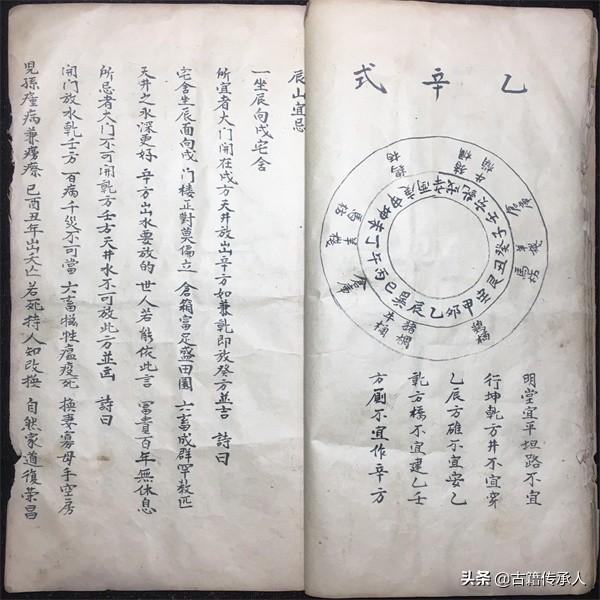 乙辛式
丙巳巽辰乙卯甲寅艮丑癸子壬亥乾戌辛酉庚申坤未丁午
牛欄
猪欄
鷄栖
明堂宜平坦路不宜
行坤乾方井不宜穿
乙辰方碓不宜安乙
乾方橋不宜建乙壬
方厠不宜作辛方
辰山宜忌
一坐辰向戌宅舍
所宜者大门開在戌方天井放出辛方如兼乾即放癸方並吉 詩曰
宅舍坐辰面向戌 门楼正對莫偏立 倉箱富足盛田園 六畜成群罕数匹
天井之水深更好 辛方出水要放的 世人若能依此言 冨貴百年無休息
所忌者大门不可開乾方壬方天井水不可放此二方並凶 詩曰
開门放水乾壬方 百病千災不可當 六畜犠牲瘟疫死 換妻寡母手空房
児孫瘟病兼癆瘵 巳酉丑年出夭亡 若死持人知改換 自然家道復荣昌
头条 @古籍传承人